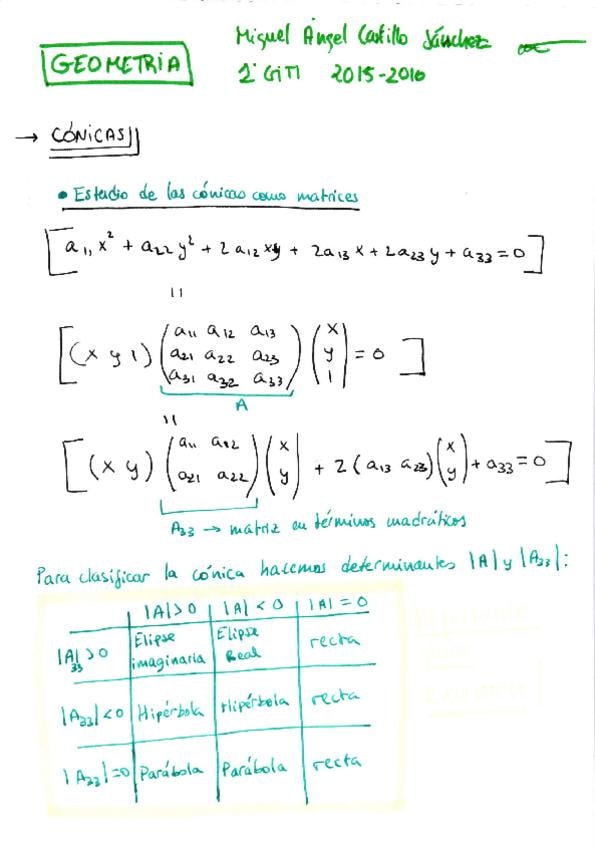 GEOMETRIA
Miguel Ángel Castillo Sánchez
1º GITI 2015-2016
→ CÓNICAS
• Estudio de las cónicas como matrices
[a₁₁x² + a₂₂y² + 2a₁₂xy + 2a₁₃x + 2a₂₃y + a₃₃ = 0]
||
[(x y 1) (a₁₁ a₁₂ a₁₃
a₂₁ a₂₂ a₂₃
a₃₁ a₃₂ a₃₃) (x y 1) = 0]
A
||
[(x y) (a₁₁ a₁₂
a₂₁ a₂₂) (x y) + 2(a₁₃ a₂₃) (x y) + a₃₃ = 0]
A₃₃ → matriz en términos cuadráticos
Para clasificar la cónica hacemos determinantes |A| y |A₃₃|:
|A|>0 |A|<0 |A|=0
|A₃₃|>0 Elipse imaginaria Elipse Real recta
|A₃₃|<0 Hipérbola Hipérbola recta
|A₃₃|=0 Parábola Parábola recta